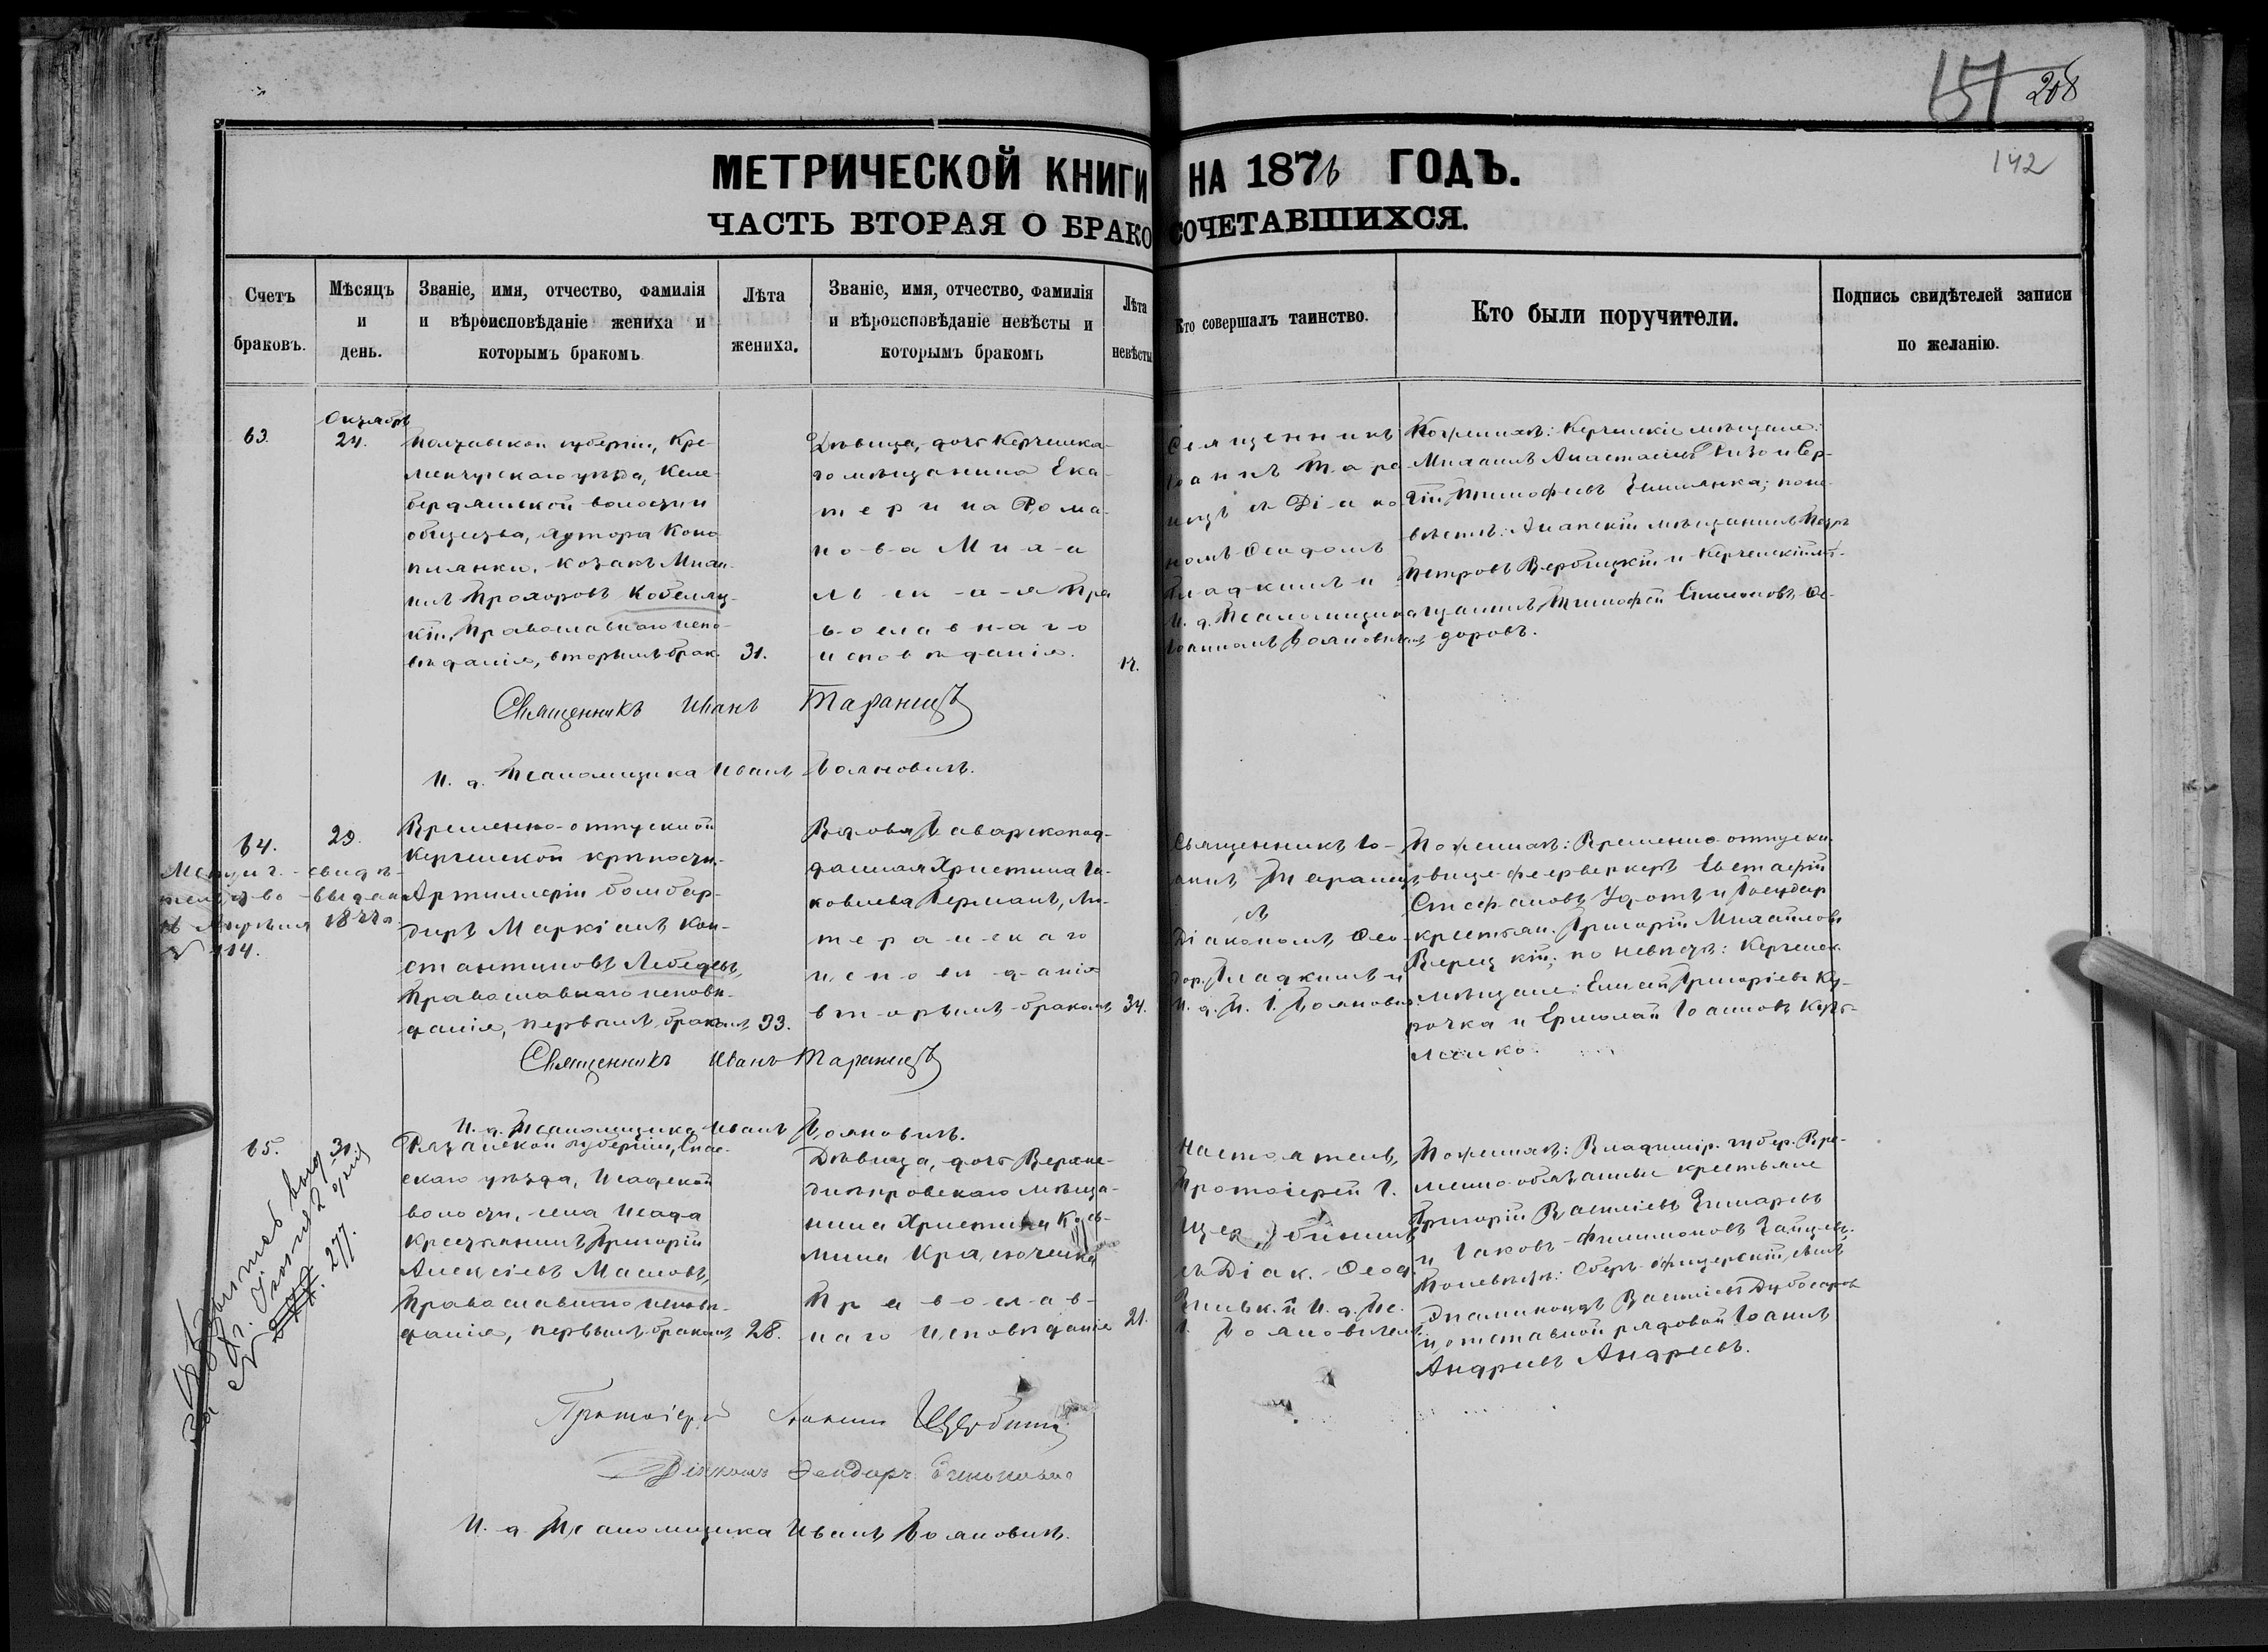 151 208
142
МЕТРИЧЕСКОЙ КНИГИ НА 1876 ГОДЪ.
ЧАСТЬ ВТОРАЯ О БРАКОСОЧЕТАВШИХСЯ.
Счетъ браковъ.
Мѣсяцъ и день.
Званіе, имя, отчество, фамилія и вѣроисповѣданіе жениха и которымъ бракомъ
Лѣта жениха.
Званіе, имя, отчество, фамилія и вѣроисповѣданіе невѣсты и которымъ бракомъ
Лѣта невѣсты
Кто совершалъ таинство.
Кто были поручители.
Подпись свидѣтелей записи по желанію.
63.
Октябрь
24.
Полтавской губерніи, Кре-
менчугскаго уѣзда, Келе-
бердянской волости и
общества, хутора Коно-
плянки, козакъ Миха-
илъ Прохоровъ Кобеляц-
кій, Православнаго испо-
вѣданія, вторымъ брак.
31.
Дѣвица, дочь Керченска-
го мѣщанина Ека-
терина Рома-
нова
Пра-
вославнаго
исповѣданія.
17.
Священникъ
Іоаннъ Тара-
нецъ съ Діако-
номъ Ѳеодоромъ
Гладкимъ и
И. д. Псаломщика
Іоанномъ Бояновичемъ
По женихѣ: Керченскіе мѣщане:
Михаилъ Анастасіевъ Ризо и Сер-
гій Тимофеевъ; по не-
вѣстѣ: Анапскій мѣщанинъ Петръ
Петровъ Вербицкій и Керченскій мѣ-
щанинъ Тимофей Симоновъ Ѳе-
доровъ.
Священникъ Иванъ Таранецъ
И. д. Псаломщика Иванъ Бояновичъ.
64.
29.
свидѣ-
тельство выдано
Апрѣля 1877 г.
№ 114.
Временно-отпускной
Керченской крѣпостн.
Артиллеріи бомбар-
диръ Маркіанъ Кон-
стантиновъ Лебедевъ,
Православнаго исповѣ-
данія, первымъ бракомъ
33.
Вдова Баварскопод-
данная Христина Іа-
ковлева Германъ, Лю-
теранскаго
исповѣданія
вторымъ бракомъ
34.
Священникъ Іо-
аннъ Таранецъ
съ
Діакономъ Ѳео-
дор. Гладкимъ и
И. д. П. І. Бояновичъ
По женихѣ: Временно-отпускн.
вице-фейерверкеръ Евстафій
Стефановъ Удотъ и Государ.
крестьян. Григорій Михайловъ
кій; по невѣстѣ: Керченск.
мѣщане: Елисей Григорьевъ Ку-
рочка и Ермолай Іоанновъ
Священникъ Иванъ Таранецъ
И. д. Псаломщика Иванъ Бояновичъ.
65.
31.
2 дня
№ 277.
Рязанской губерніи, Спас-
скаго уѣзда, Исадской
волости, села Исада
крестьянинъ Григорій
Алексѣевъ Масловъ,
Православнаго исповѣ-
данія, первымъ бракомъ
28.
Дѣвица, дочь Верхне-
днѣпровскаго мѣща-
нина Христина Козь-
мина
Православ-
наго исповѣданія
21.
Настоятель,
Протоіерей І.
Щербининъ
съ Діак. Ѳеод.
и И. д. Пс.
І. Бояновичемъ
По женихѣ: Владимір. губер. Вре-
менно-обязанные крестьяне
Григорій Василіевъ
и Іаковъ Филимоновъ Зайцевъ.
По невѣстѣ: Оберъ-офицерскій сынъ
Эпаминондъ Василіевъ Дубосаровъ
и отставной рядовой Іоаннъ
Андреевъ Андреевъ.
Протоіерей Іоаннъ
Діаконъ Ѳеодоръ
И. д. Псаломщика Иванъ Бояновичъ.